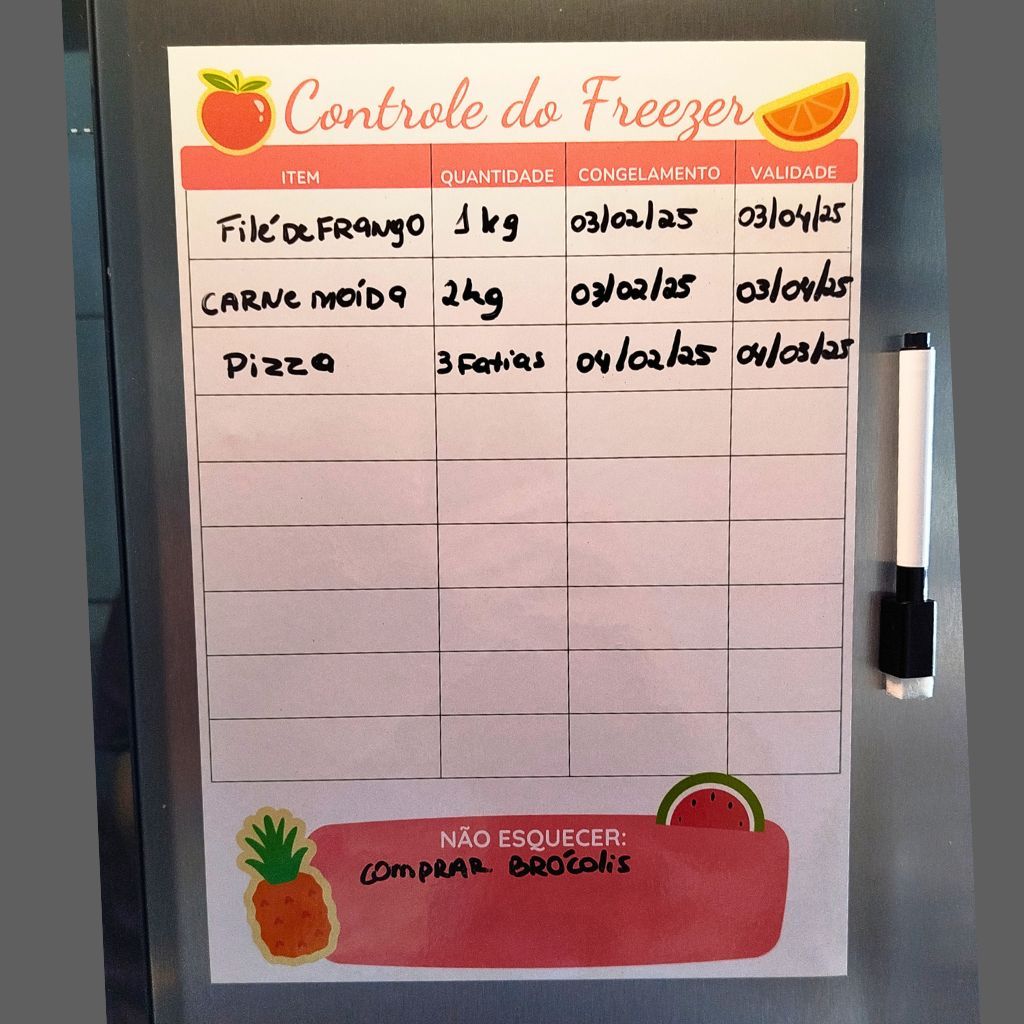 Controle do Freezer
ITEM QUANTIDADE CONGELAMENTO VALIDADE
Filé De FRANgO 1 kg 03/02/25 03/04/25
CARNe moíDa 2kg 03/02/25 03/04/25
Pizza 3 Fatias 04/02/25 04/03/25
NÃO ESQUECER:
COMPRAR BRÓColis